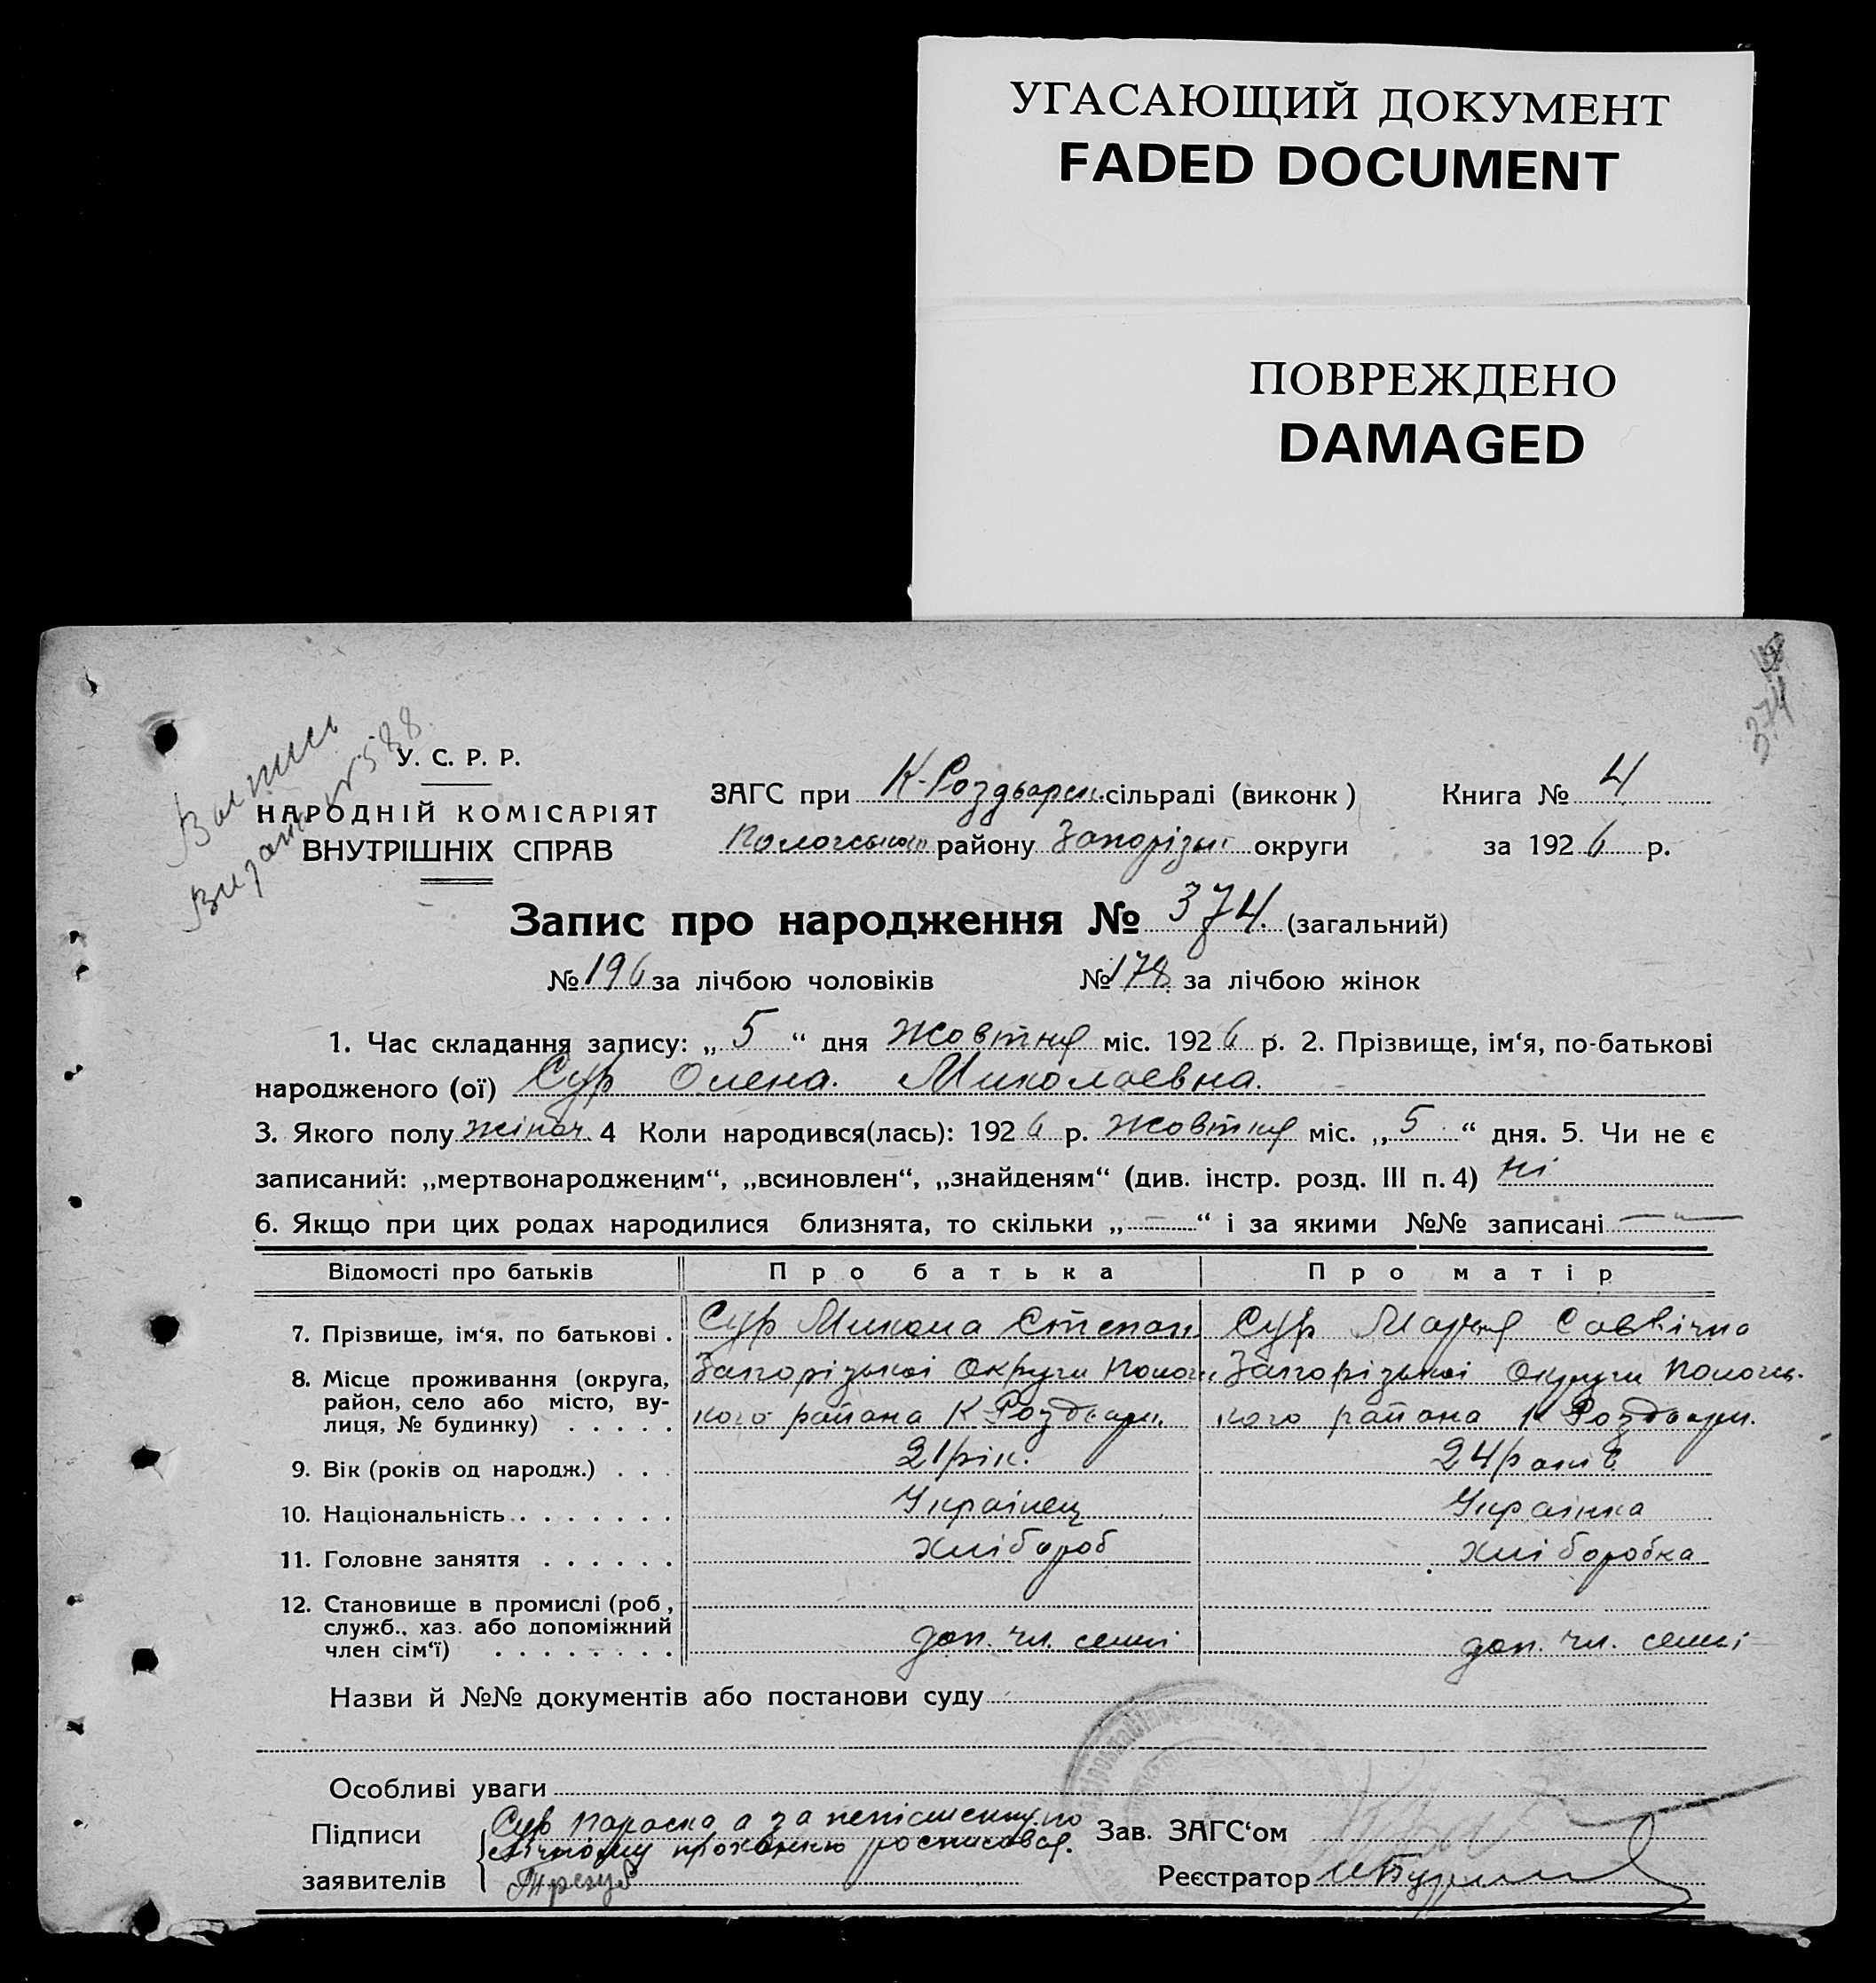 УГАСАЮЩИЙ ДОКУМЕНТ
FADED DOCUMENT
ПОВРЕЖДЕНО
DAMAGED
374
Витяг
Видано №588.
У. С. Р. Р.
НАРОДНІЙ КОМІСАРІЯТ
ВНУТРІШНІХ СПРАВ
ЗАГС при К-Роздварск. сільраді (виконк) Книга № 4
Пологського району Запорізьк. округи за 1926 р.
Запис про народження № 374. (загальний)
№ 196 за лічбою чоловіків № 178 за лічбою жінок
1. Час складання запису: „ 5 “ дня Жовтня міс. 1926 р. 2. Прізвище, ім‘я, по-батькові
народженого (ої) Сур Олена. Миколаевна.
3. Якого полу жіноч. 4 Коли народився(лась): 1926 р. Жовтня міс. „ 5 “ дня. 5. Чи не є
записаний: „мертвонародженим“, „всиновлен“, „знайденям“ (див. інстр. розд. III п. 4) ні
6. Якщо при цих родах народилися близнята, то скільки „ — “ і за якими №№ записані — „ —
Відомості про батьків Про батька Про матір
7. Прізвище, ім‘я, по батькові . Сур Микола Степан. Сур Марія Саввічна
8. Місце проживання (округа, Запорізької Округи Полог. Запорізької Округи Пологь-
район, село або місто, ву- кого района К-Роздварк. кого района К Роздварк.
лиця, № будинку) . . . . .
9. Вік (років од народж.) . . . 21 рік. 24 років
10. Національність . . . . . . . Українець Українка
11. Головне заняття . . . . . . хлібороб хліборобка
12. Становище в промислі (роб.,
служб., хаз. або допоміжний
член сім‘ї) . . . . . . . . доп. чл. семьі доп. чл. семьі
Назви й №№ документів або постанови суду
Особливі уваги
Підписи Сур Параска а за непісьменну по
заявителів її личному проханню росписався. Зав. ЗАГС‘ом
Трегуб Реєстратор